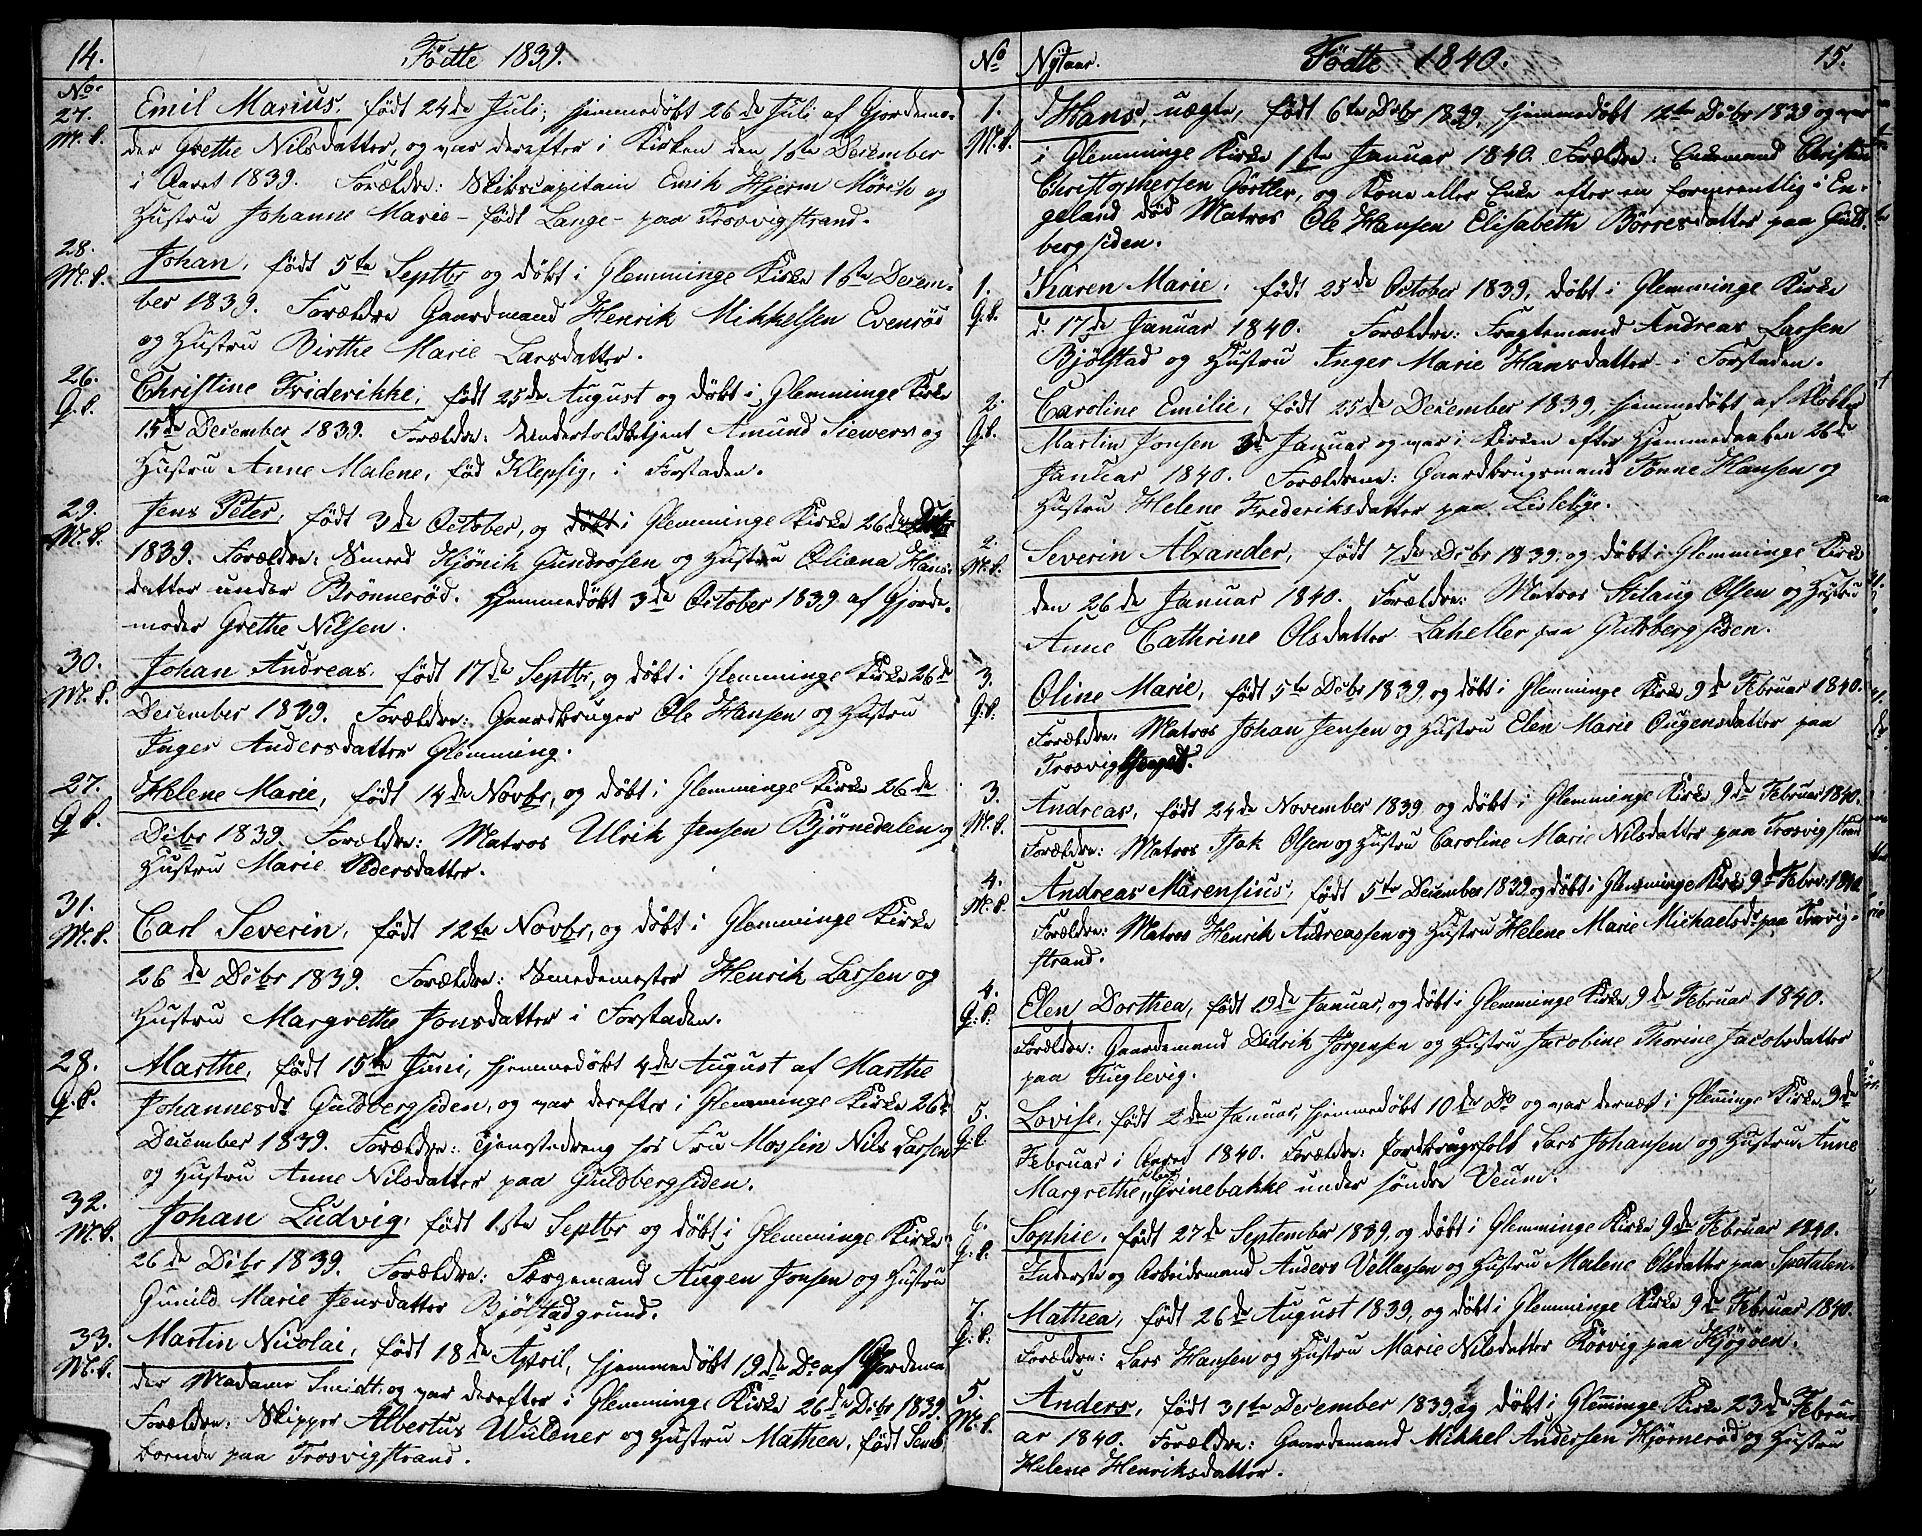 14. Födte 1839.
No
27. Emil Marius, født 24de Juli, hjemmedøbt 26de Juli af Gjordemo-
M.K. der Grethe Nilsdatter, og var derefter i Kirken den 16te December
i Aaret 1839. Forældre: Skibscapitain Emih Hjerm Mörch og
Hustru Johanne Marie - født Lange - paa Trosvigstrand.
28. Johan, født 5te Septbr og døbt i Glemminge Kirke 16te Decem-
M.K. ber 1839. Forældre Gaardmand Henrik Mikkelsen Evenröd
og Hustru Birthe Marie Larsdatter.
26. Christine Friderikke, født 25de August og døbt i Glemminge Kirke
Q.K. 15de December 1839. Forældre: Undertoldbetjent Amund Siewers og
Hustru Anne Malene, fød Klepsig, i Forstaden.
29. Jens Peter, født 3de October, og døbt i Glemminge Kirke 26de Debr
M.K. 1839. Forældre: Smeed Hjönik Gundrosen og Hustru Oliana Hans-
datter under Brönneröd. Hjemmedøbt 3de October 1839 af Gjorde-
moder Grethe Nilsen.
30. Johan Andreas, født 17de Septbr, og døbt i Glemminge Kirke 26de
M.K. December 1839. Forældre: Gaardbruger Ole Hansen og Hustru
Inger Andersdatter Glemming.
27. Helene Marie, født 14de Novbr, og døbt i Glemminge Kirke 26de
Q.K. Debr 1839. Forældre: Matros Ulrik Jensen Björnedalen og
Hustru Marie Pedersdatter.
31. Carl Severin, født 12te Novbr, og døbt i Glemminge Kirke
M.K. 26de Debr 1839. Forældre: Smedemester Henrik Larsen og
Hustru Margrethe Jonsdatter i Forstaden.
28. Marthe, født 15de Juni, hjemmedøbt 4de August af Marthe
Q.K. Johannesdr Guldbergsiden, og var derefter i Glemminge Kirke 26de
December 1839. Forældre: Tjenestedreng hos Fru Mossin Nils Larsen
og Hustru Anne Nilsdatter paa Guldbergsiden.
32. Johan Ludvig, født 1ste Septbr og døbt i Glemminge Kirke
M.K. 26de Debr 1839. Forældre: Færgemand Augen Jonsen og Hustru
Gunild Marie Jensdatter Bjölstadgrund.
33. Martin Nicolai, født 18de April, hjemmedøbt 19de Do af Gjordemo-
M.K. der Madame Smidt, og var derefter i Glemminge Kirke 26de Debr 1839.
Forældre: Skipper Albertus Wüldner og Hustru Mathea, født
paa Trosvigstrand.
No Nytaar. Födte 1840. 15.
1. Hans, uægte, født 6te Debr 1839, hjemmedøbt 12te Debr 1839 og var
M.K. i Glemminge Kirke 1ste Januar 1840. Forældre: Enkemand Christian
Christophersen Görtler, og Kone eller Enke efter en formeentlig i En-
geland død Matros Ole Hansen Elisabeth Börresdatter paa Guld-
bergsiden.
1. Karen Marie, født 25de October 1839, døbt i Glemminge Kirke
Q.K. d. 17de Januar 1840. Forældre: Fragtemand Andreas Larsen
Bjölstad og Hustru Inger Marie Hansdatter i Forstaden.
2. Caroline Emilie, født 25de December 1839, hjemmedøbt af Klokker
Q.K. Martin Jonsen 3de Januar og var i Kirken efter Hjemmedaaben 26de
Januar 1840. Forældrene: Gaardbrugsmand Tönne Hansen og
Hustru Helene Frederiksdatter paa Lisleby.
2. Severin Alxander, født 7de Debr 1839, og døbt i Glemminge Kirke
M.K. den 26de Januar 1840. Forældre: Matros Aslaug Olsen og Hustru
Anne Cathrine Olsdatter Laheller paa Guldbergsiden.
3. Oline Marie, født 5te Debr 1839, og døbt i Glemminge Kirke 9de Februar 1840.
Q.K. Forældre: Matros Johan Jensen og Hustru Elen Marie Ougensdatter paa
Trosvig
3. Andreas, født 24de November 1839 og døbt i Glemminge Kirke 9de Februar 1840.
M.K. Forældre: Matros Isak Olsen og Hustru Caroline Marie Nilsdatter paa Trosvigstrand
4. Andreas Marensius, født 5te December 1839 og døbt i Glemminge Kirke 9de Febru: 1840.
M.K. Forældre: Matros Henrik Andreassen og Hustru Helene Marie Michaelsdr paa Trosvig-
strand.
4. Elen Dorthea, født 19de Januar, og døbt i Glemminge Kirke 9de Februar 1840.
Q.K. Forældre: Gaardemand Didrik Jörgensen og Hustru Jacobine Thorine Jacobsdatter
paa Fuglevig.
5. Lovise, født 2den Januar, hjemmedøbt 10de Do og var dernæst i Glemminge Kirke 9de
Q.K. Februar i Aaret 1840. Forældre: Jordbrugsfolk Lars Johansen og Hustru Anne
Margrethe Grinebakke under söndre Veum.
6. Sophie, født 27de September 1839, og døbt i Glemminge Kirke 9de Februar 1840.
Q.K. Inderste og Arbeidsmand Anders Vellassen og Hustru Malene Olsdatter paa Spetalen.
7. Mathea, født 26de August 1839, og døbt i Glemminge Kirke 9de Februar 1840.
Q.K. Forældre: Lars Hansen og Hustru Marie Nilsdatter Körvig paa Kjögöen.
5. Anders, født 31te December 1839, og døbt i Glemminge Kirke 23de Febru-
M.K. ar 1840. Forældre: Gaardemand Mikkel Andersen Hjörneröd og Hustru
Helene Henriksdatter.